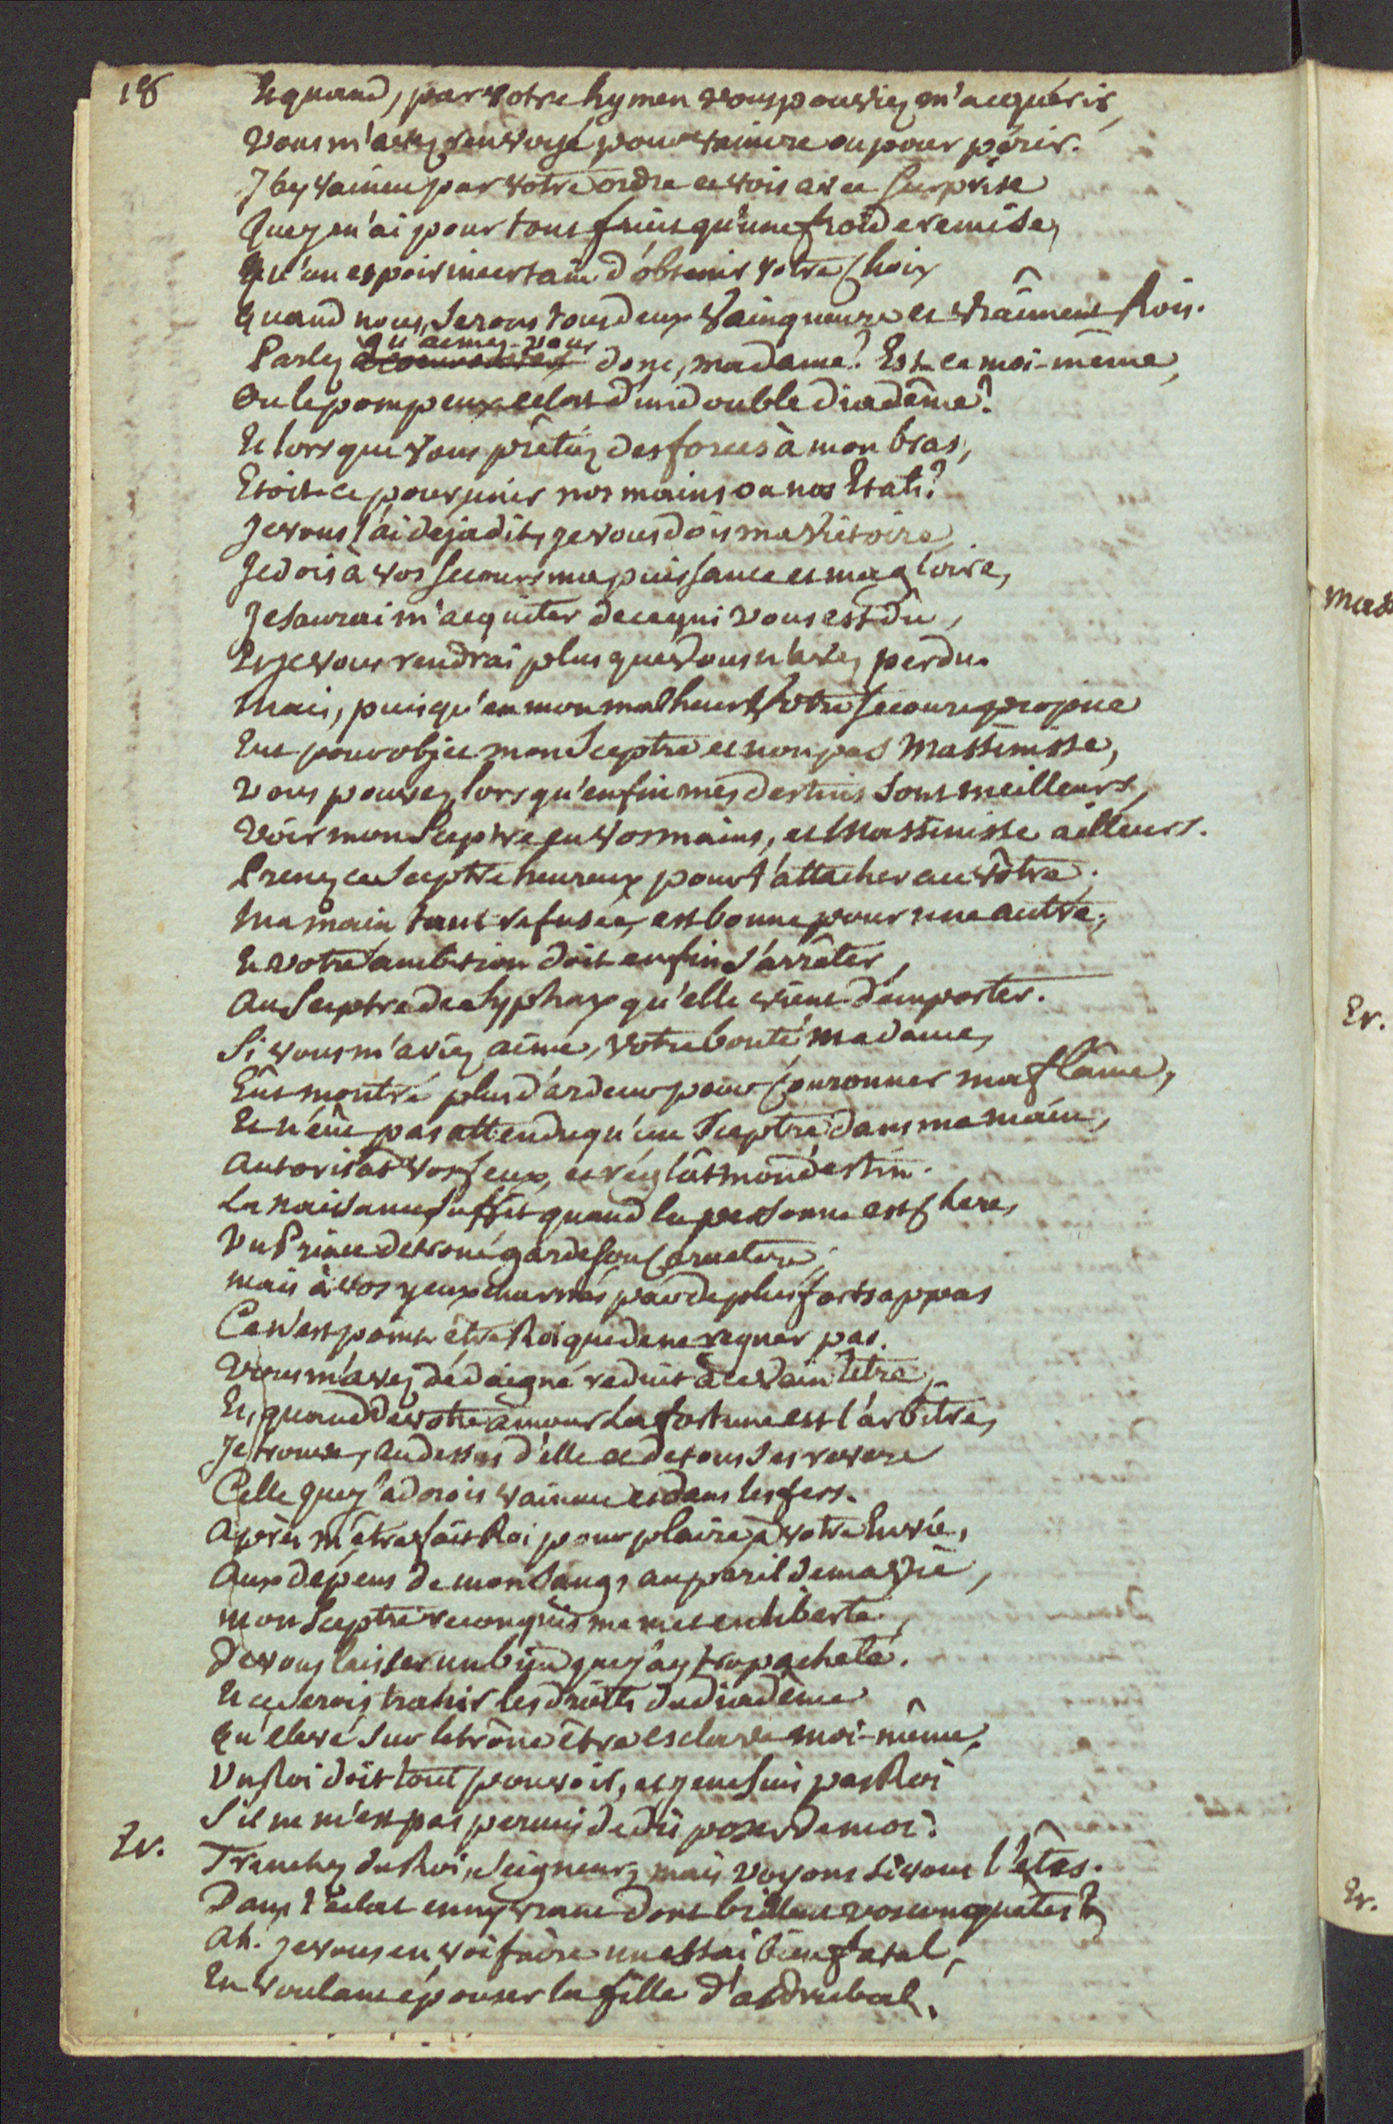 18
Et quand, par votre hymen vous pouviez m'acquérir,
Vous m'avez renvoyé pour vaincre ou pour périr.
J'ay vaincu par votre ordre et vois avec surprise
Que je n'ai pour tout fruit qu'une froide remise,
Qu'un espoir incertain d'obtenir votre choix
Quand nous serons tous deux vainqueurs et vraîment Rois.
qu'aimez-vous
Parlez donc, madame? Est-ce moi-même,
Ou le pompeux eclat d'un double diadême?
Et lorsque vous prêtiez des forces à mon bras,
Etoit-ce pour unir nos mains ou nos Etats?
Je vous l'ai deja dit, je vous dois ma victoire,
Je dois à vos secours ma puissance et ma gloire,
Je saurai m'aquiter de ce qui vous est dû,
Et je vous rendrai plus que vous n'avez perdu.
Mais, puisqu'en mon malheur votre secours propice
Eut pour objet mon Sceptre et non pas Massinisse,
Vous pouvez, lorsqu'enfin mes destins sont meilleurs,
Voir mon Sceptre en vos mains, et Massinisse ailleurs.
Prenez ce Sceptre heureux pour l'attacher au vôtre;
Ma main tant refusée, est bonne pour une autre;
Et votre ambition doit enfin s'arrêter,
Au Sceptre de Syphax qu'elle vient d'emporter.
Si vous m'aviez aimé, votre bonté madame,
Eût montré plus d'ardeur pour couronner ma flâme,
Et n'eût pas attendu qu'un Sceptre dans ma main,
Autorisât vos feux, et réglât mon destin.
La naissance suffit quand la personne est chere,
Un Prince detroné garde son caractere;
Mais à vos yeux charmés par de plus forts appas
Ce n'est point être Roi que de ne regner pas.
Vous m'avez dédaigné reduit à ce vain titre,
Et, quand de votre amour la fortune est l'arbitre,
Je trouve, au dessus d'elle et de tous ses revers
Celle que j'adorois vaincu et dans les fers.
Après m'être fait Roi pour plaire à votre Envie,
Aux dépens de mon sang, au peril de ma vie,
Mon Sceptre reconquis me met en liberté,
De vous laisser un bien que j'ay trop acheté.
Et ce serois trahir les droits du diadême
Qu'elevé sur le trône être esclave moi-même.
Un Roi doit tout pouvoir, et je ne suis pas Roi
S'il ne m'est pas permis de disposer de moi.
Er. Tranchez du Roi, Seigneur, mais voyons si vous l'êtes.
Dans l'éclat ennyvrant dont brillent vos conquêtes?
Ah. je vous en voi faire un essai bien fatal,
En voulant épouser la fille d'asdrubal.
Er.
Er.